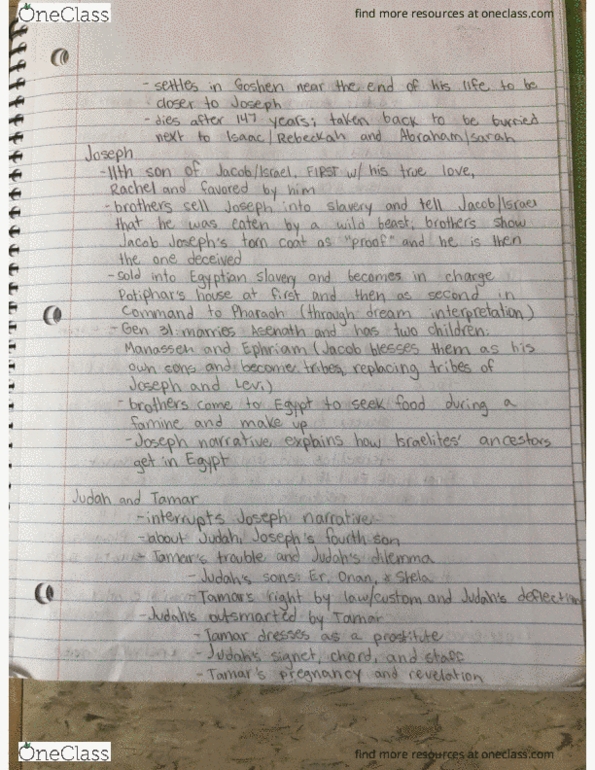 OneClass
find more resources at oneclass.com
- settles in Goshen near the end of his life to be
closer to Joseph
- dies after 147 years; taken back to be burried
next to Isaac/Rebeckah and Abraham/Sarah
Joseph
- 11th son of Jacob/Israel, FIRST w/ his true love,
Rachel and favored by him
- brothers sell Joseph into slavery and tell Jacob/Israel
that he was eaten by a wild beast; brothers show
Jacob Joseph's torn coat as "proof" and he is then
the one deceived
- sold into Egyptian slavery and becomes in charge
Potiphar's house at first and then as second in
command to Pharaoh (through dream interpretation)
- Gen 31: marries Asenath and has two children:
Manasseh and Ephriam (Jacob blesses them as his
own sons and become tribes, replacing tribes of
Joseph and Levi)
- brothers come to Egypt to seek food during a
famine and make up
- Joseph narrative explains how Israelites' ancestors
get in Egypt
Judah and Tamar
- interrupts Joseph narrative
- about Judah, Joseph's fourth son
- Tamar's trouble and Judah's dilemma
- Judah's sons: Er, Onan, & Shela
- Tamar's right by law/custom and Judah's deflection
- Judah's outsmarted by Tamar
- Tamar dresses as a prostitute
- Judah's signet, chord, and staff
- Tamar's pregnancy and revelation
OneClass
find more resources at oneclass.com